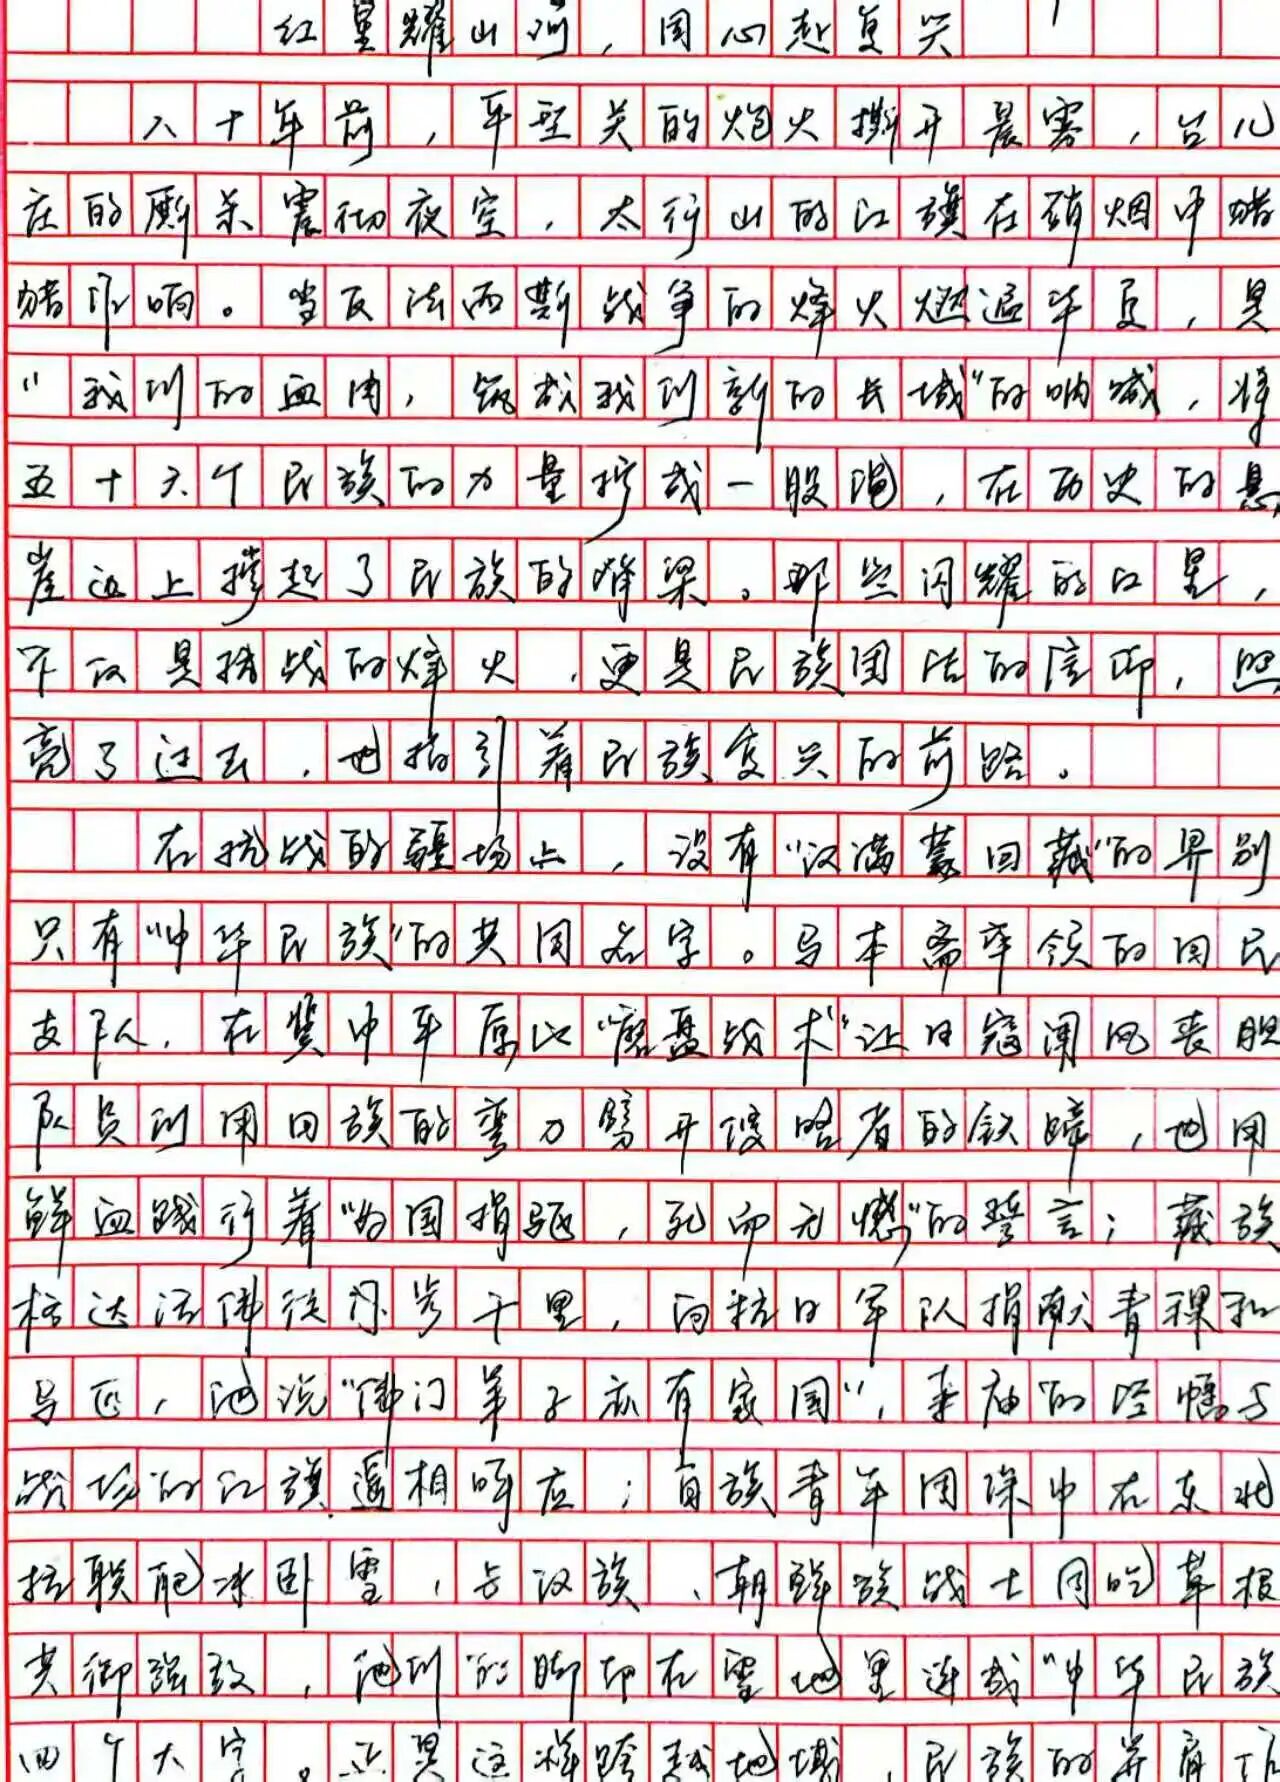 红星耀山河，同心赴复兴
八十年前，平型关的炮火撕开晨雾，台儿
庄的厮杀震彻夜空，太行山的红旗在硝烟中猎
猎作响。当反法西斯战争的烽火燃遍华夏，是
“我们的血肉，筑成我们新的长城”的呐喊，将
五十六个民族的力量拧成一股绳，在历史的悬
崖边上撑起了民族的脊梁。那些闪耀的红星，
不仅是抗战的烽火，更是民族团结的信仰，照
亮了过去，也指引着民族复兴的前路。
在抗战的疆场上，没有“汉满蒙回藏”的界别
只有“中华民族”的共同名字。马本斋率领的回民
支队，在冀中平原以“磨盘战术”让日寇闻风丧胆
队员们用回族的弯刀劈开侵略者的铁蹄，也用
鲜血践行着“为国捐躯，死而无憾”的誓言；藏族
格达活佛徒步千里，向抗日军队捐献青稞和
马匹，他说“佛门弟子亦有家国”，寺庙的经幡与
战场的红旗遥相呼应；白族青年周保中在东北
抗联爬冰卧雪，与汉族、朝鲜族战士同吃草根
共御强敌，他们的脚印在雪地里连成“中华民族
四个大字。正是这样跨越地域、民族的并肩